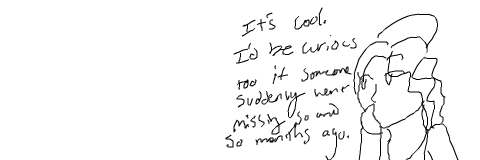 It's cool.
I'd be curious
too if someone
suddenly went
missing so and
so months ago.